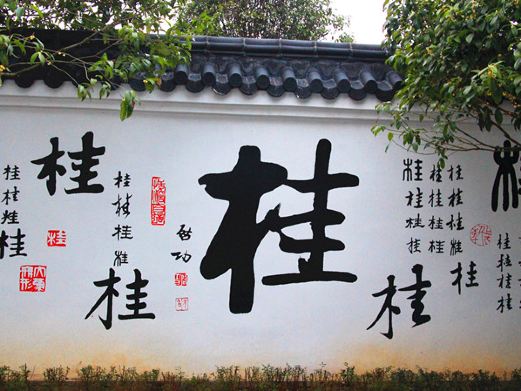 桂桂桂桂
桂
桂
桂桂桂桂
桂
启功
桂
桂桂桂桂
桂桂桂桂
桂桂桂
桂
桂
桂
桂桂桂桂